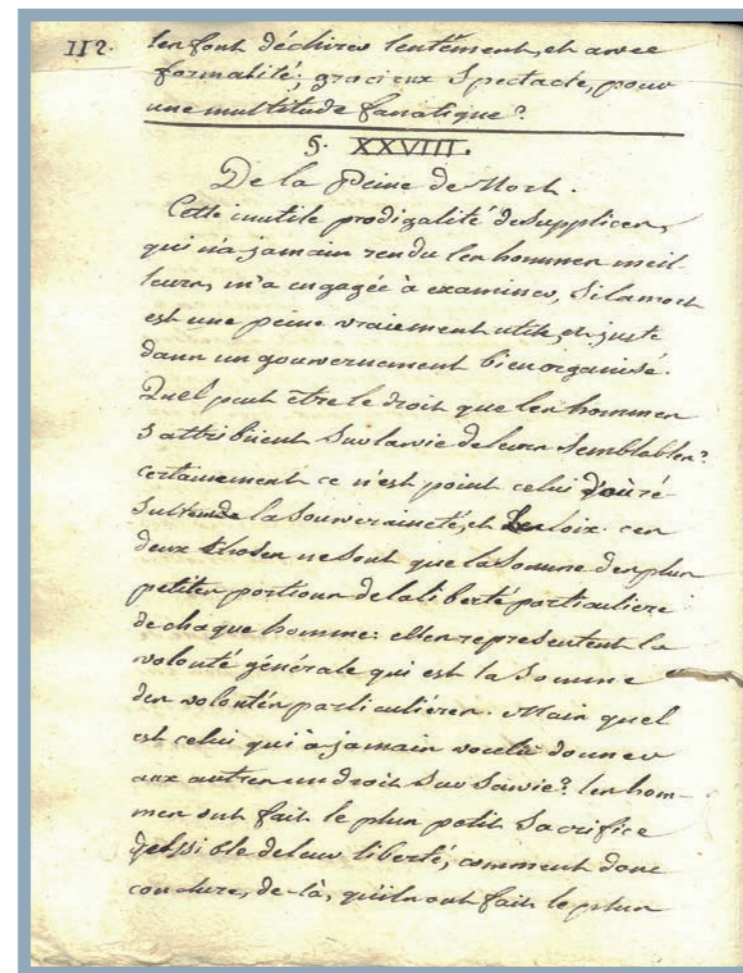 112.
les font déchirer lentement, et avec
formalité; gracieux Spectacle, pour
une multitude fanatique?
§. XXVIII.
De la Peine de Mort.
Cette inutile prodigalité de Supplices,
qui n'a jamais rendu les hommes meil-
leurs, m'a engagée à examiner, Si la mort
est une peine vraiement utile, et juste
dans un gouvernement bien organisé.
Quel peut être le droit que les hommes
S'attribüent Sur la vie de leurs Semblables?
certainement ce n'est point celui d'où ré-
la Souveraineté, et Les loix. ces
deux choses ne Sont que la Somme des plus
petites portions de la liberté particuliere
de chaque homme: elles representent la
volonté générale qui est la Somme
des volontés particuliéres. Mais quel
est celui qui à jamais voulu donner
aux autres un droit Sur Sa vie? les hom-
mes ont fait le plus petit Sacrifice
possible de leur liberté, comment donc
conclure, de-là, qu'ils ont fait le plus